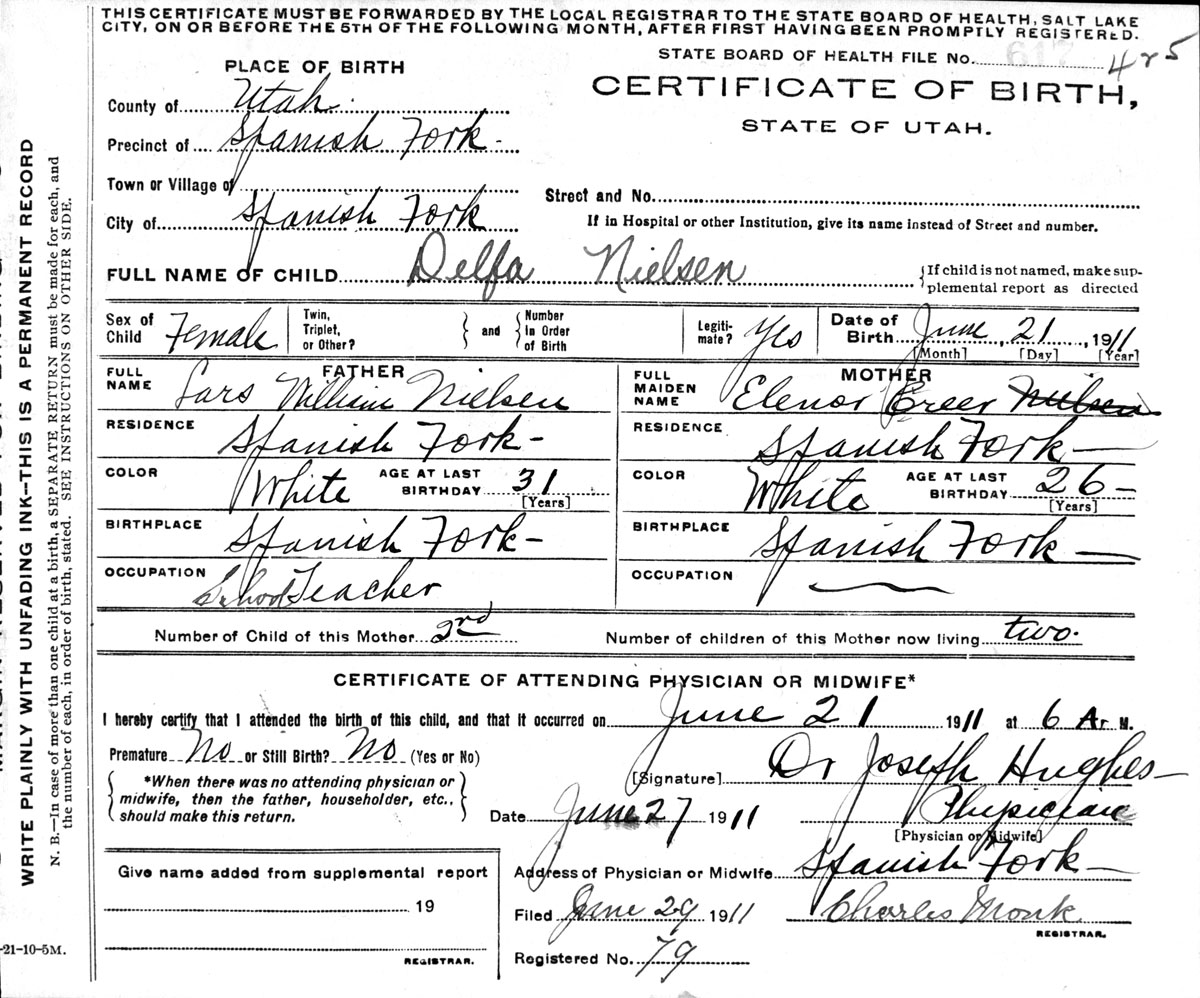 THIS CERTIFICATE MUST BE FORWARDED BY THE LOCAL REGISTRAR TO THE STATE BOARD OF HEALTH, SALT LAKE
CITY, ON OR BEFORE THE 5TH OF THE FOLLOWING MONTH, AFTER FIRST HAVING BEEN PROMPTLY REGISTERED.
STATE BOARD OF HEALTH FILE No. 617 425
PLACE OF BIRTH
CERTIFICATE OF BIRTH,
STATE OF UTAH.
County of Utah
Precinct of Spanish Fork-
Town or Village of
Street and No.
City of Spanish Fork
If in Hospital or other Institution, give its name instead of Street and number.
FULL NAME OF CHILD Delfa Nielsen {If child is not named, make sup-
plemental report as directed
Sex of Child Female Twin, Triplet, or Other? } and { Number In Order of Birth Legiti-mate? Yes Date of Birth June, 21, 1911
[Month] [Day] [Year]
FATHER MOTHER
FULL NAME Lars William Nielsen FULL MAIDEN NAME Elenor Creer Nielsen
RESIDENCE Spanish Fork- RESIDENCE Spanish Fork—
COLOR White AGE AT LAST BIRTHDAY 31 [Years] COLOR White AGE AT LAST BIRTHDAY 26- [Years]
BIRTHPLACE Spanish Fork- BIRTHPLACE Spanish Fork—
OCCUPATION School Teacher OCCUPATION —
Number of Child of this Mother 2nd Number of children of this Mother now living two.
CERTIFICATE OF ATTENDING PHYSICIAN OR MIDWIFE*
I hereby certify that I attended the birth of this child, and that it occurred on June 21 1911 at 6 A. M.
Premature No or Still Birth? No (Yes or No)
[Signature] Dr Joseph Hughes-
{ *When there was no attending physician or
midwife, then the father, householder, etc.,
should make this return. }
Date June 27 1911 Physician
[Physician or Midwife]
Address of Physician or Midwife Spanish Fork—
Filed June 29 1911 Charles Monk
REGISTRAR.
Registered No. 79
Give name added from supplemental report
19
REGISTRAR.
WRITE PLAINLY WITH UNFADING INK--THIS IS A PERMANENT RECORD
N. B.—In case of more than one child at a birth, a SEPARATE RETURN must be made for each, and
the number of each, in order of birth, stated. SEE INSTRUCTIONS ON OTHER SIDE.
-21-10-5M.